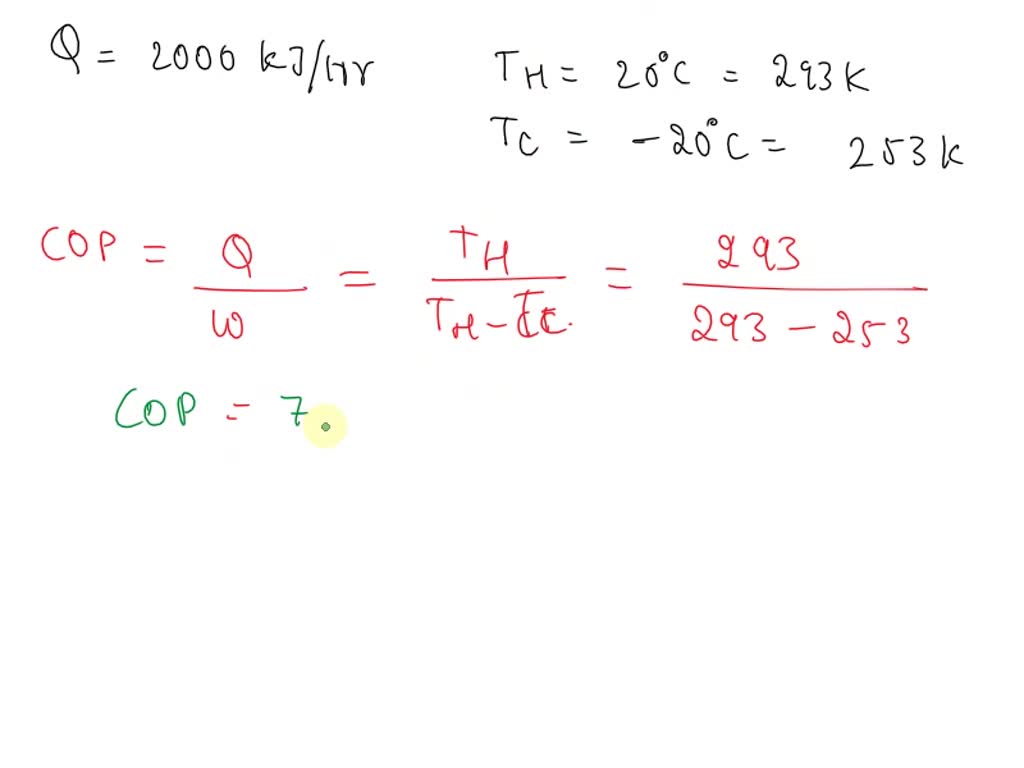 Q = 2000 kJ/hr
TH = 20°C = 293K
TC = -20°C = 253K
COP = Q / W = TH / TH - TC = 293 / 293 - 253
COP = 7.